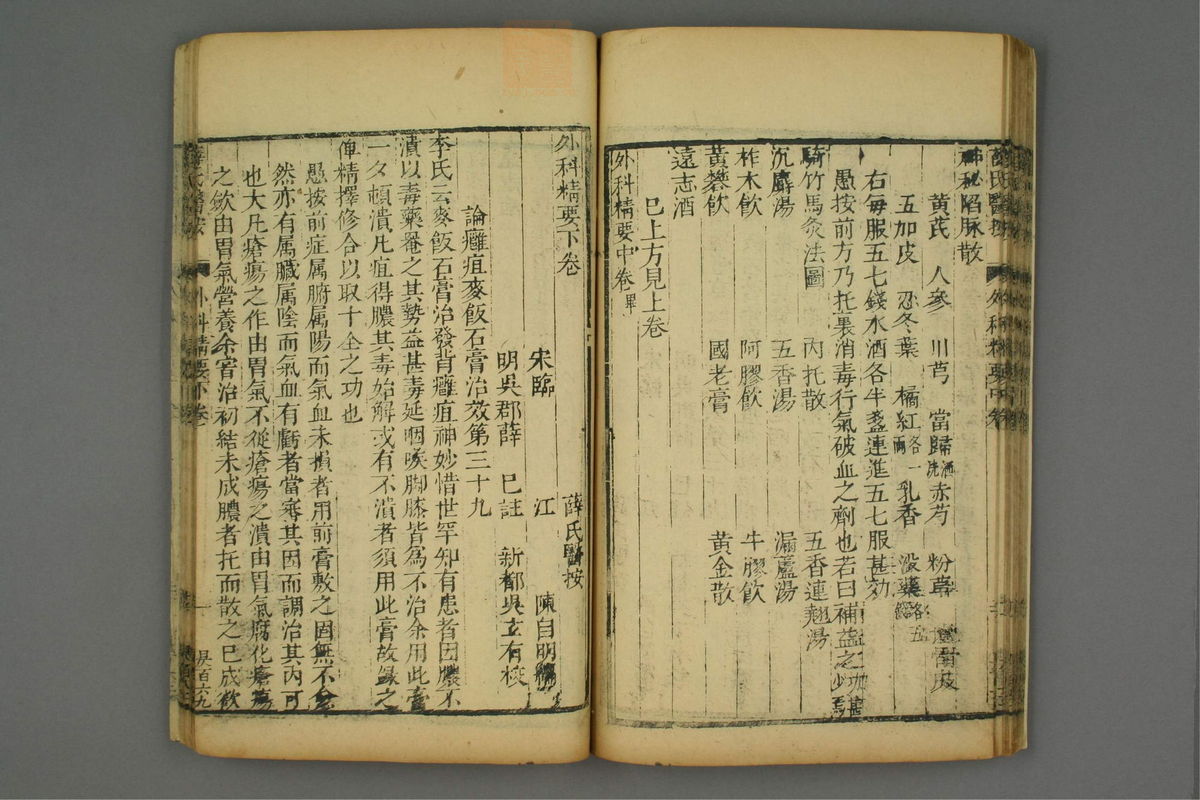 薛氏醫按 外科精要中卷
神秘陷脉散
黃芪 人參 川芎 當歸酒洗 赤芍 粉草
五加皮 忍冬葉 橘紅各一兩 乳香 沒藥各五錢
右每服五七錢水酒各半盞連進五七服甚効
愚按前方乃托裏消毒行氣破血之劑也若曰補益之功甚少焉
騎竹馬灸法圖 內托散 五香連翹湯
沉麝湯 五香湯 漏蘆湯
柞木飲 阿膠飲 牛膠飲
黃礬飲 國老膏 黃金散
遠志酒
已上方見上卷
外科精要中卷畢
外科精要下卷 薛氏醫按
宋臨江 陳自明編
明吳郡薛 已註 新都吳玄有校
論癰疽麥飯石膏治效第三十九
李氏云麥飯石膏治發背癰疽神妙惜世罕知有患者因膿不
潰以毒藥罨之其勢益甚毒延咽喉脚膝皆爲不治余用此膏
一夕頓潰凡疽得膿其毒始解或有不潰者須用此膏故錄之
俾精擇修合以取十全之功也
愚按前症属腑属陽而氣血未損者用前膏敷之固無不愈
然亦有属臟属陰而氣血有虧者當審其因而調治其內可
也大凡瘡瘍之作由胃氣不從瘡瘍之潰由胃氣腐化瘡瘍
之斂由胃氣營養余甞治初結未成膿者托而散之已成欲
薛氏醫按 外科精要下卷 一 昃百六九